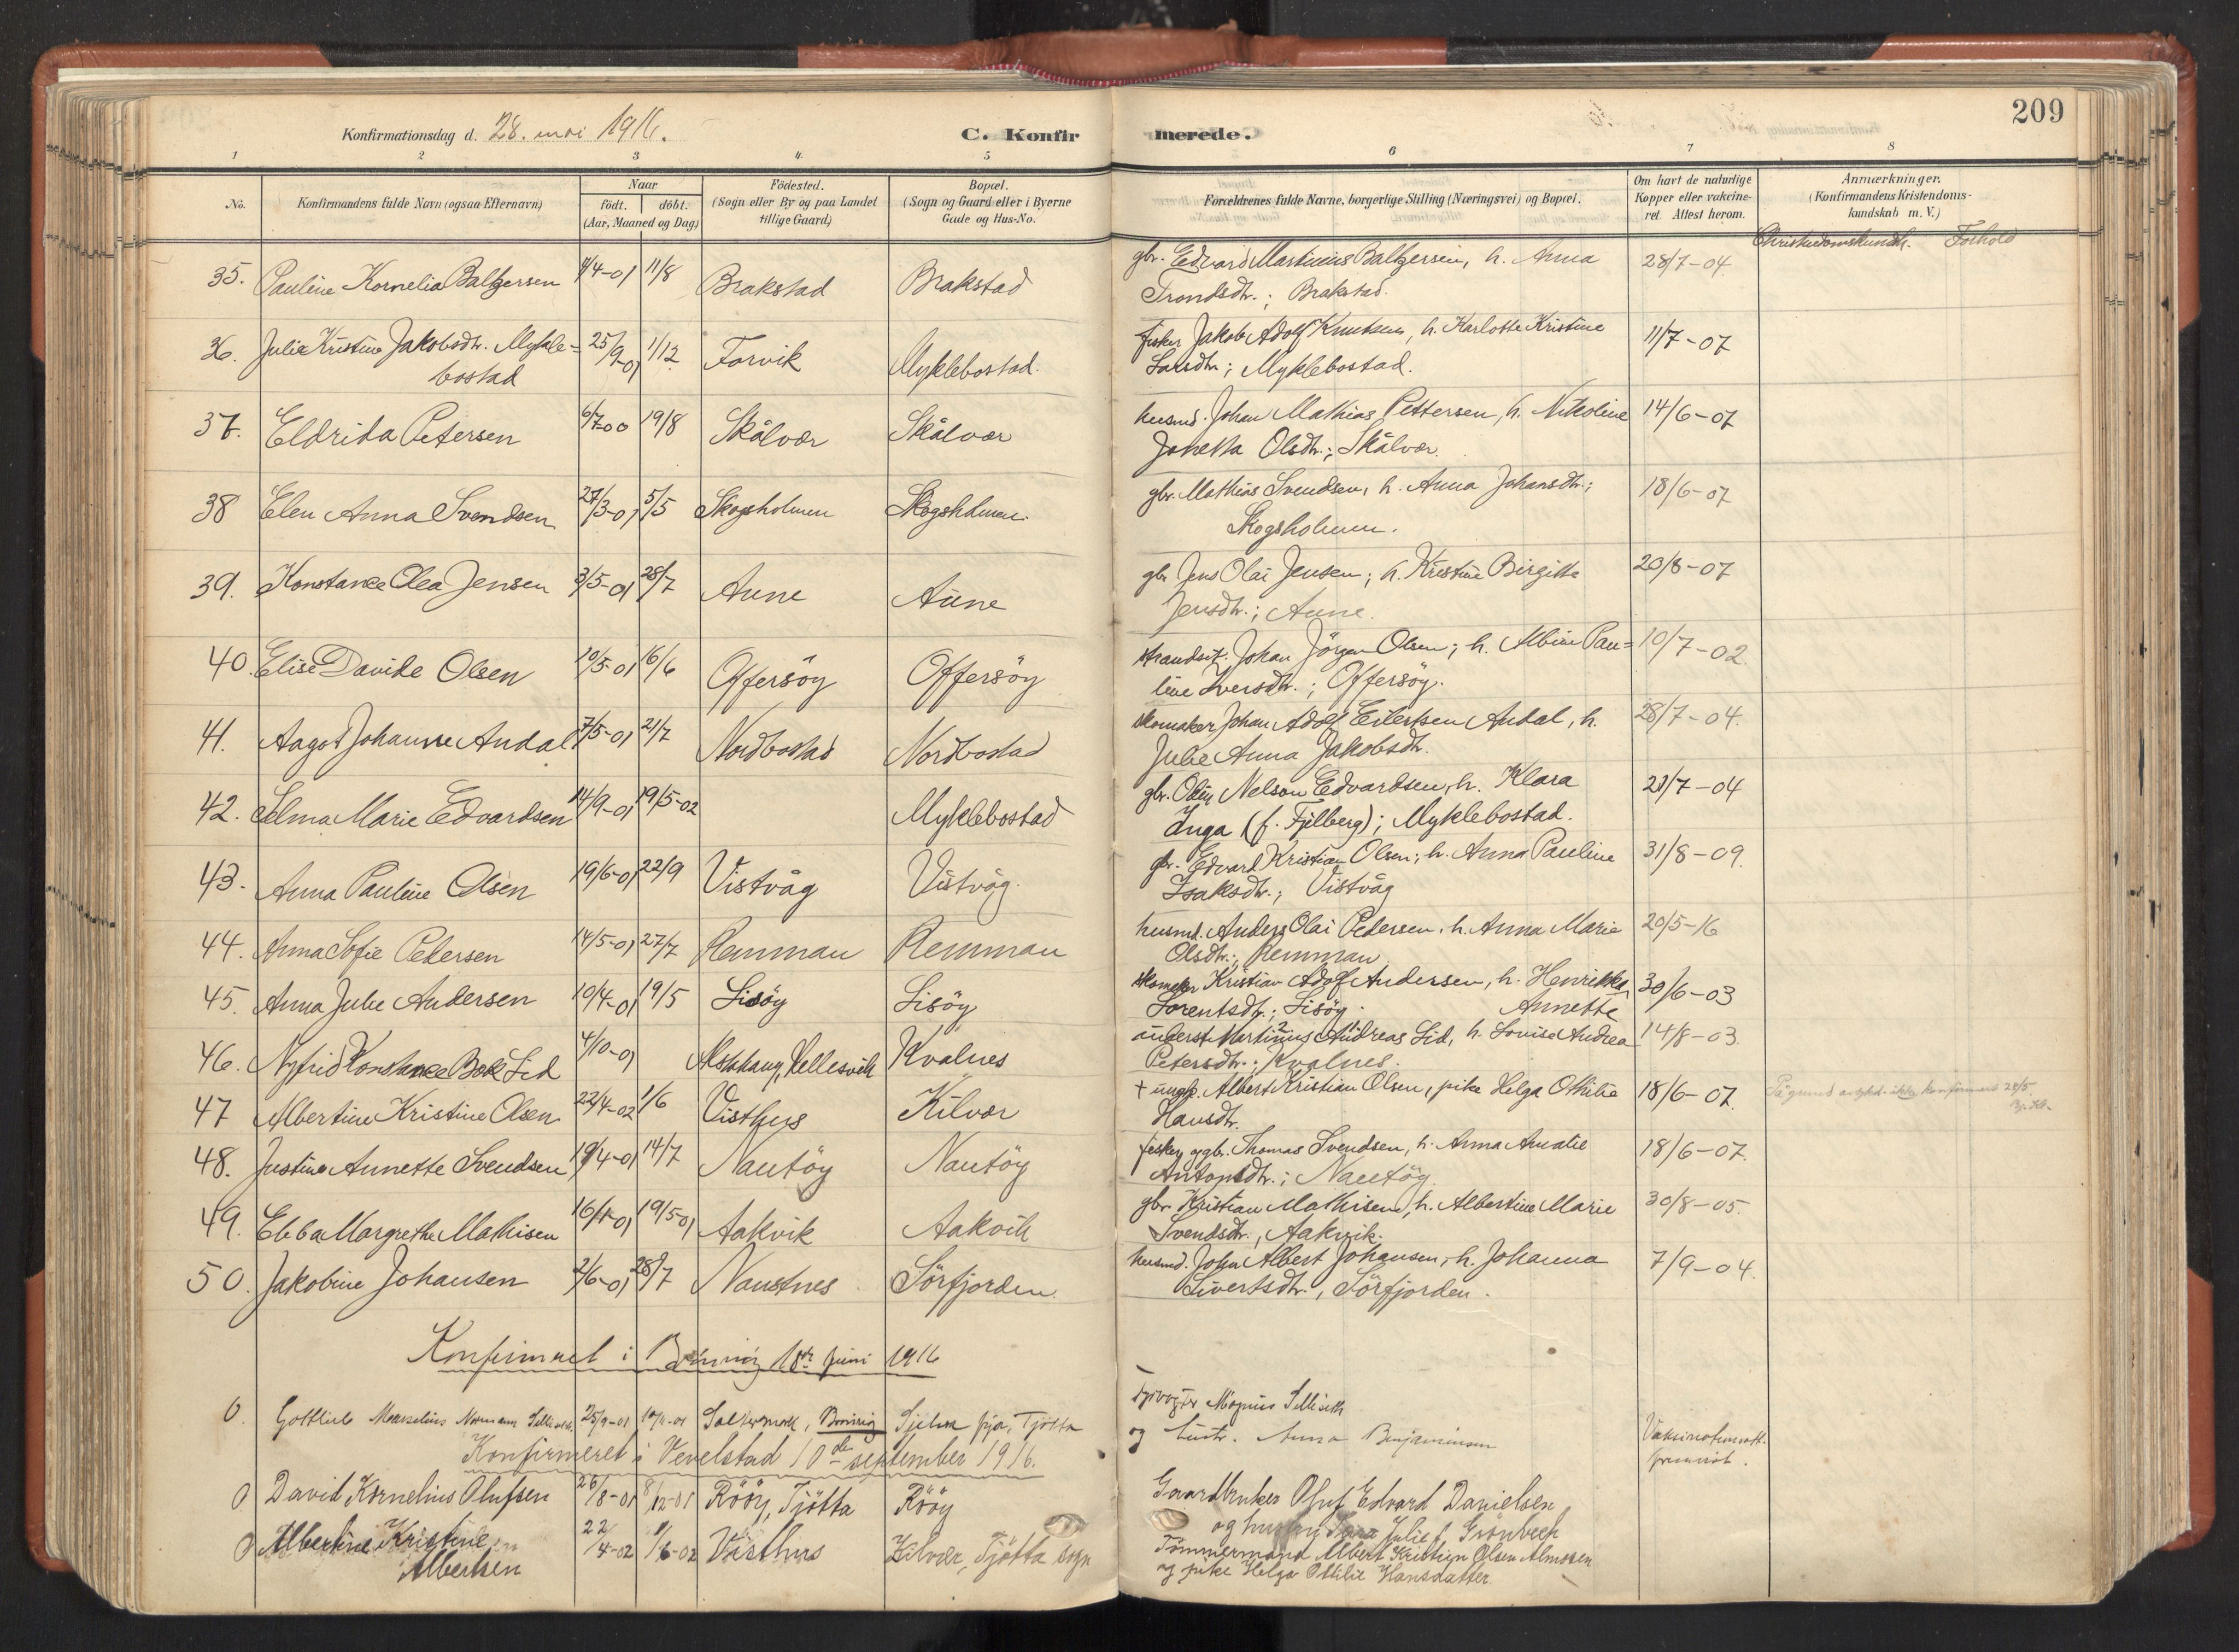 209
Konfirmationsdag d. 28. mai 1916.
C. Konfirmerede.
1 2 3 4 5 6 7 8
No.
Konfirmandens fulde Navn (ogsaa Efternavn)
Naar
födt. döbt.
(Aar, Maaned og Dag)
Födested.
(Sogn eller By og paa Landet
tillige Gaard)
Bopæl.
(Sogn og Gaard eller i Byerne
Gade og Hus-No.
Forældrenes fulde Navne, borgerlige Stilling (Næringsvei) og Bopæl.
Om havt de naturlige
Kopper eller vakcine-
ret. Attest herom.
Anmærkninger.
(Konfirmandens Kristendoms-
kundskab m. V.)
Christendomskundsk. Forhold
35. Pauline Kornelia Baltzersen 4/4-01 11/8 Brakstad Brakstad gbr. Edvard Martinius Baltzersen, h. Anna 28/7-04.
Trondsdtr.; Brakstad.
36. Julie Kristine Jakobsdtr. Mykle= 25/9-01 1/12 Forvik Myklebostad. fisker Jakob Adolf Knutsen, h. Karlotte Kristine 11/7-07
bostad Larsdtr; Myklebostad.
37. Eldrida Petersen 6/7-00 19/8 Skålvær Skålvær husmd. Johan Mathias Pettersen, h. Nikoline 14/6-07
Jonetta Olsdtr.; Skålvær.
38 Elen Anna Svendsen 27/3-01 5/5 Skogsholmen Skogsholmen. gbr. Mathias Svendsen, h. Anna Johansdtr.; 18/6-07
Skogsholmen.
39. Konstance Olea Jensen 3/5-01 28/7 Aune Aune gbr Jens Olai Jensen; h. Kristine Birgitte 20/8-07
Jensdtr.; Aune.
40. Elise Davide Olsen 10/5-01 16/6 Offersöy Offersöy strandsit. Johan Jörgen Olsen; h. Albine Pau= 10/7-02.
line Iversdtr.; Offersöy.
41. Aagot Johanne Andal 7/5-01 21/7 Nordbostad Nordbostad skomaker Johan Adolf Eilertsen Andal, h. 28/7-04.
Julie Anna Jakobsdtr.
42. Selma Marie Edvardsen 14/9-01 19/5-02 Myklebostad gbr. Nelson Edvardsen, h. Klara 21/7-04
Inga (f. Fjelberg); Myklebostad.
43. Anna Pauline Olsen 19/6-01 22/9 Vistvåg Vistvåg. gbr. Edvard Kristian Olsen; h. Anna Pauline 31/8-09.
Isaksdtr.; Vistvåg
44. Anna Sofie Pedersen 14/5-01 27/7 Remman Remman husmd. Anders Olai Pedersen, h. Anna Marie 20/5-16
Olsdtr.; Remman
45. Anna Julie Andersen 10/4-01 19/5 Lisöy Lisöy skomaker Kristian Adolf Andersen, h. Henrikka 30/6-03
Lorentsdtr.; Lisöy. Annette
46. Konstance Lid 4/10-01 Alstahaug, Hellesvik Kvalnes Martinus Andreas Lid, h. Lovise Andrea 14/8-03.
Petersdtr.; Kvalnes.
47 Albertine Kristine Olsen 22/4-02 1/6 Visthus Kilvær + ungk. Albert Kristian Olsen, pike Helga Othilie 18/6-07. På grund av sykd. ikke konfirmert 28/5
Hansdtr.
48. Justine Annette Svendsen 19/4-01 14/7 Nautöy Nautöy fisker og gb. Thomas Svendsen, h. Anna Amalie 18/6-07.
Antonsdtr.; Nautöy
49. Ebba Margrethe Mathisen 16/1-01 19/5-01 Aakvik Aakvik gbr Kristian Mathisen, h. Albertine Marie 30/8-05.
Svendsdtr., Aakvik.
50. Jakobine Johansen 2/6-01 28/7 Naustnes Sörfjorden. husmd. John Albert Johansen, h. Johanna 7/9-04.
Sivertsdtr, Sörfjorden.
Konfirmeret i Brönnöy 18de juni 1916
0. Gottlieb Marselius Normann 25/9-01 Brönnöy Tjötta Magnus
og hustr. Anna Benjaminsen
Konfirmeret i Vevelstad 10de september 1916.
0 David Kornelius Olufsen 26/8-01 8/12-01 Rööy, Tjötta Rööy Gaardbruker Oluf Edvard Danielsen
og hustru Julie f. Grönbech
0 Albertine Kristine 22/4-02 1/6-02 Visthus Kilvær, Tjötta sogn Tömmermand Albert Kristian Olsen
Albertsen og pike Helga Othilie Hansdatter